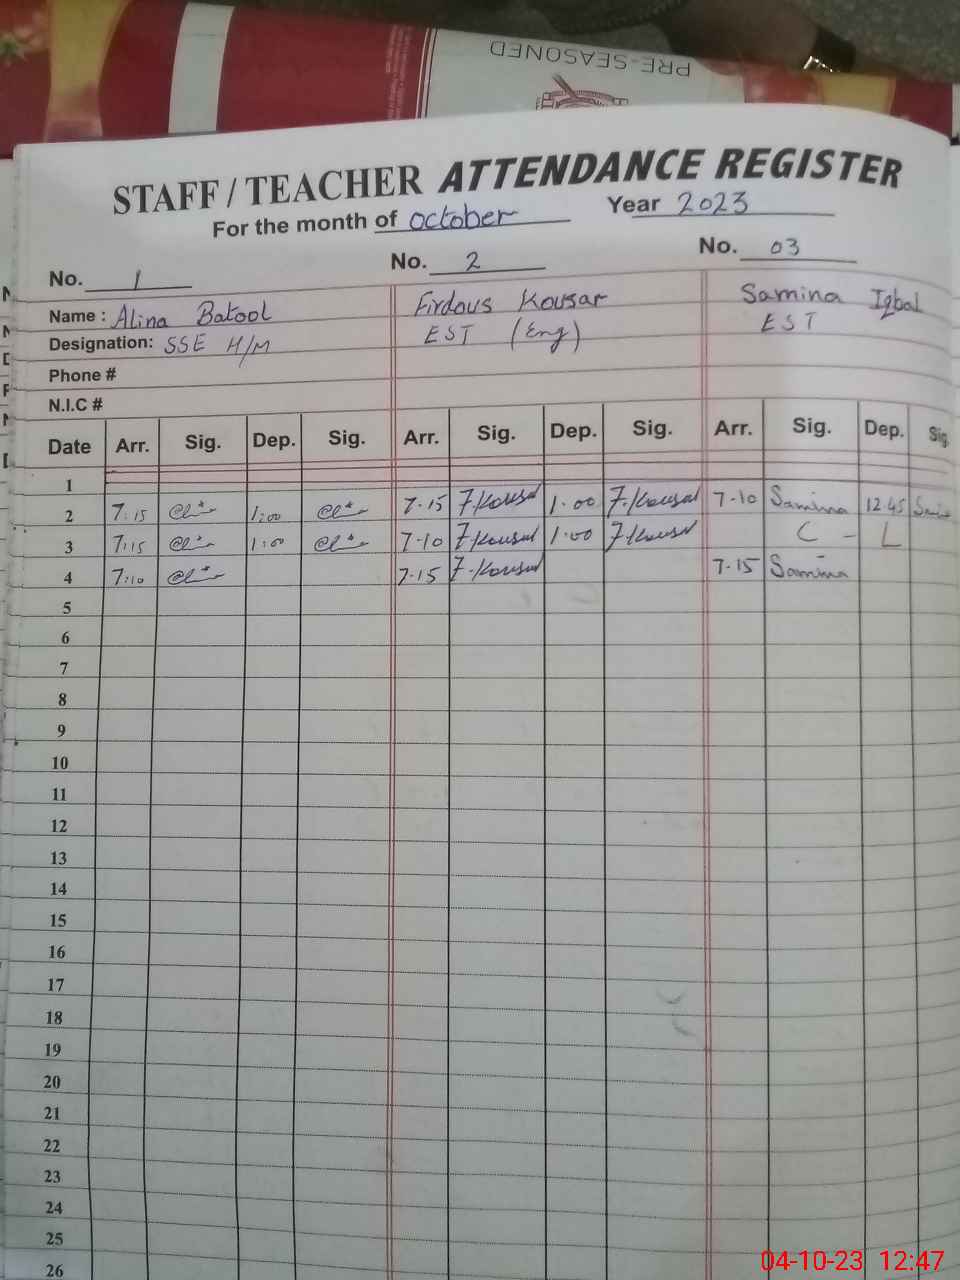 PRE-SEASONED
STAFF / TEACHER ATTENDANCE REGISTER
For the month of October Year 2023
No. 1 No. 2 No. 03
Name : Alina Batool Firdous Kousar Samina Iqbal
Designation: SSE H/M EST (Eng) EST
Phone #
N.I.C #
Date Arr. Sig. Dep. Sig. Arr. Sig. Dep. Sig. Arr. Sig. Dep. Sig.
1
2 7:15 1:00 7-15 F.Kousar 1.00 F.Kousar 7-10 Samina 12.45
3 7:15 1:00 7-10 F.Kousar 1.00 F.Kousar C - L
4 7:10 7-15 F.Kousar 7.15 Samina
5
6
7
8
9
10
11
12
13
14
15
16
17
18
19
20
21
22
23
24
25
26
04-10-23 12:47